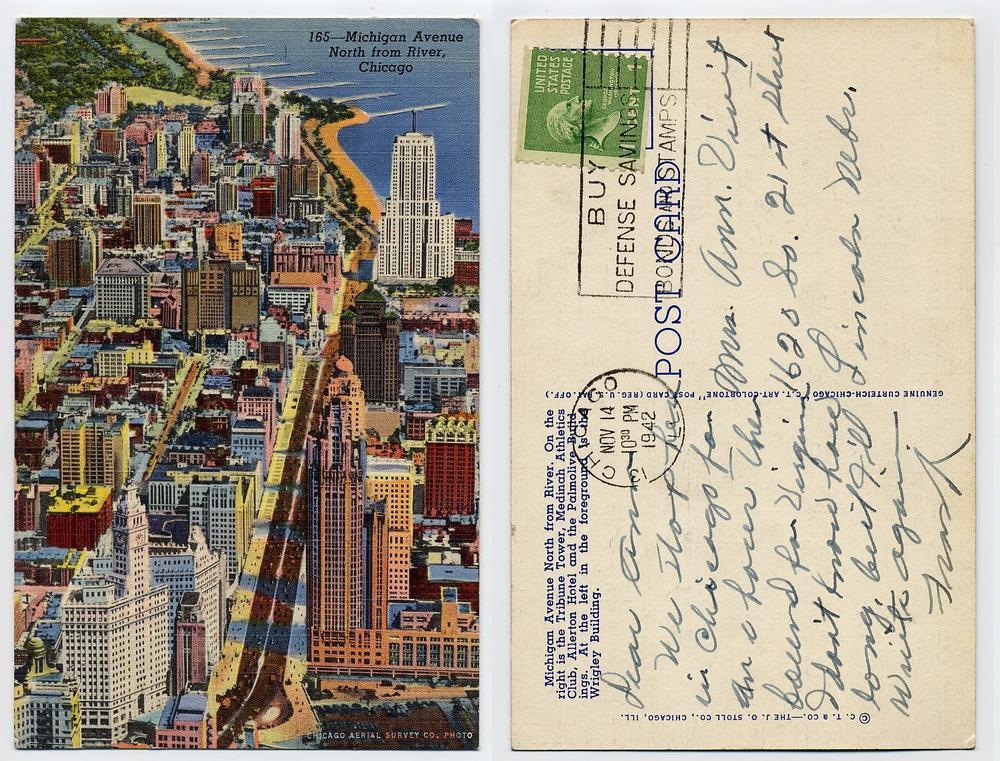 165—Michigan Avenue
North from River,
Chicago
CHICAGO AERIAL SURVEY CO. PHOTO
UNITED
STATES
POSTAGE
GEORGE
WASHINGTON
1 CENT 1
BUY
DEFENSE SAVINGS
BONDS AND STAMPS
POST CARD
CHICAGO
NOV 14
10 30 PM
1942
Michigan Avenue North from River. On the
right is the Tribune Tower, Medinah Athletics
Club, Allerton Hotel and the Palmolive Build-
ings. At the left in the foreground is the
Wrigley Building.
GENUINE CURTEICH-CHICAGO "C. T. ART-COLORTONE" POST CARD (REG. U. S. PAT. OFF.)
© C. T. & CO.—THE J. O. STOLL CO., CHICAGO, ILL.
Dear Anna
We stopped
in Chicago for
an hour then
bound for Virginia
I don't know how
long, but I'll
write again
Frank
Mrs. Ann.
1620 So. 21st Street
Lincoln Nebr.